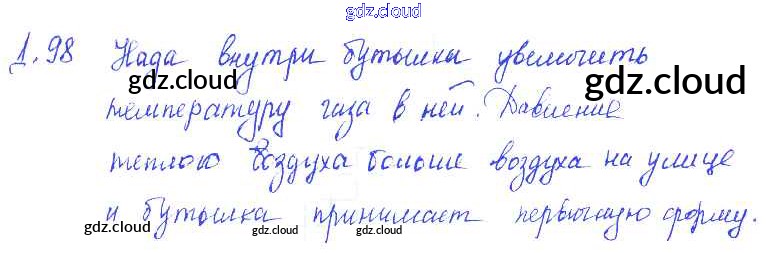 gdz.cloud
1.98 Нада внутри бутылки увеличить
gdz.cloud gdz.cloud
температуру газа в ней. Давление
gdz.cloud
теплого воздуха больше воздуха на улице
и бутылка принимает первичную форму.
gdz.cloud gdz.cloud gdz.cloud